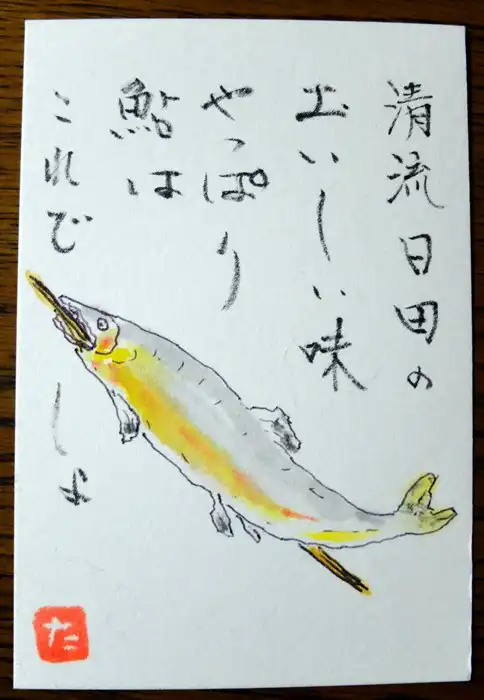 清流日田の
おいしい味
やっぱり
鮎は
これでしょ
た